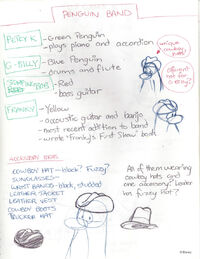 PENGUIN BAND
PETEY K - Green Penguin
- plays piano and accordion
G-BILLY - Blue Penguin
- drums and flute
STOMPIN' BOB - Red
- bass guitar
FRANKY - Yellow
- accoustic guitar and banjo
- most recent addition to band
- wrote "Franky's First Show" book
unique cowboy hat?
different hat for G Billy?
ACCESSORY IDEAS
COWBOY HAT - black? Fuzzy?
SUNGLASSES
WRIST BANDS - black, studded
LEATHER JACKET
LEATHER VEST
COWBOY BOOTS
TRUCKER HAT
All of them wearing
cowboy hats and
one accessory? Leather
or fuzzy hat?
©Disney